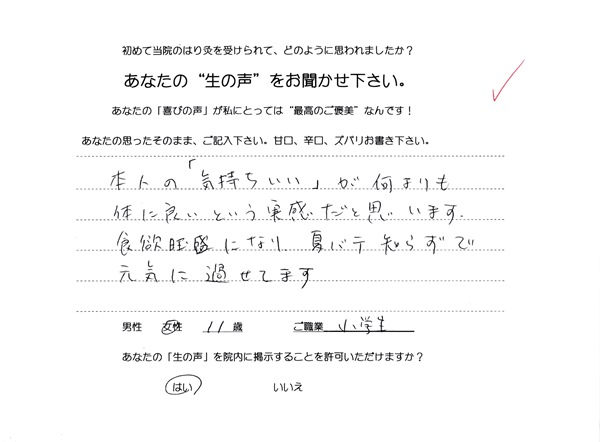 初めて当院のはり灸を受けられて、どのように思われましたか？
あなたの“生の声”をお聞かせ下さい。
あなたの「喜びの声」が私にとっては“最高のご褒美”なんです！
あなたの思ったそのまま、ご記入下さい。甘口、辛口、ズバリお書き下さい。
本人の「気持ちいい」が何よりも
体に良いという実感だと思います.
食欲旺盛になり 夏バテ知らずで
元気に過せてます
男性 女性 11 歳 ご職業 小学生
あなたの「生の声」を院内に掲示することを許可いただけますか？
はい いいえ